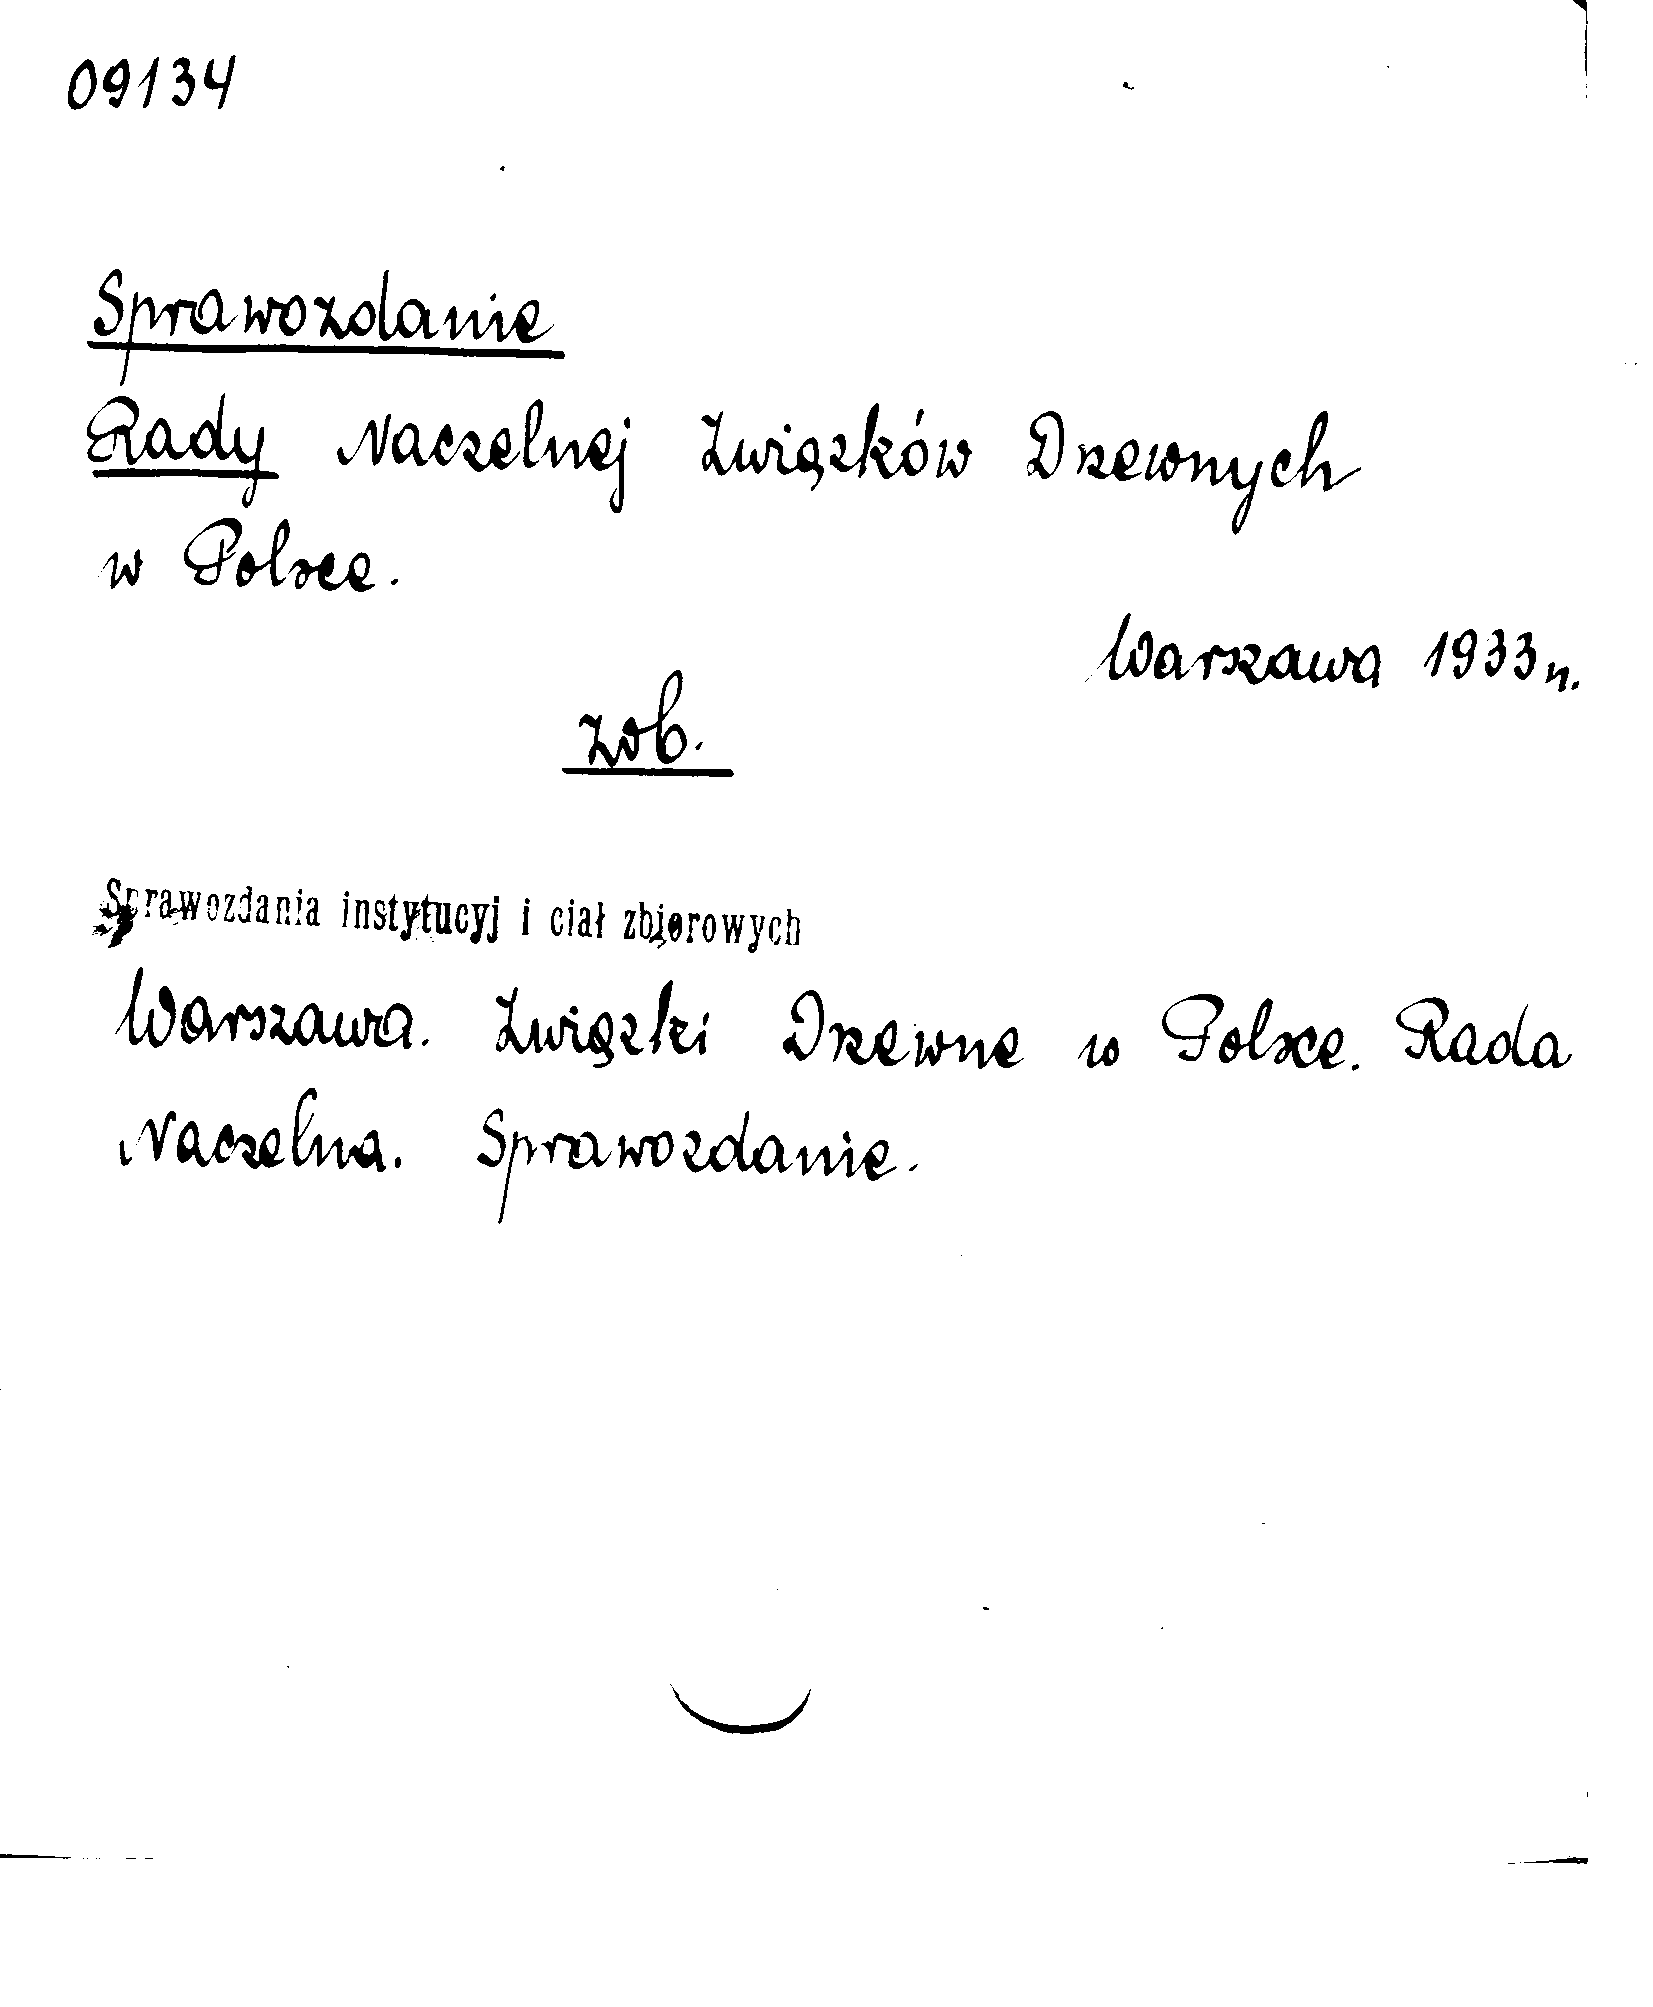 09134
Sprawozdanie
Rady Naczelnej Związków Drzewnych
w Polsce.
Warszawa 1933 r.
zob.
Sprawozdania instytucyj i ciał zbiorowych
Warszawa. Związki Drzewne w Polsce. Rada
Naczelna. Sprawozdanie.